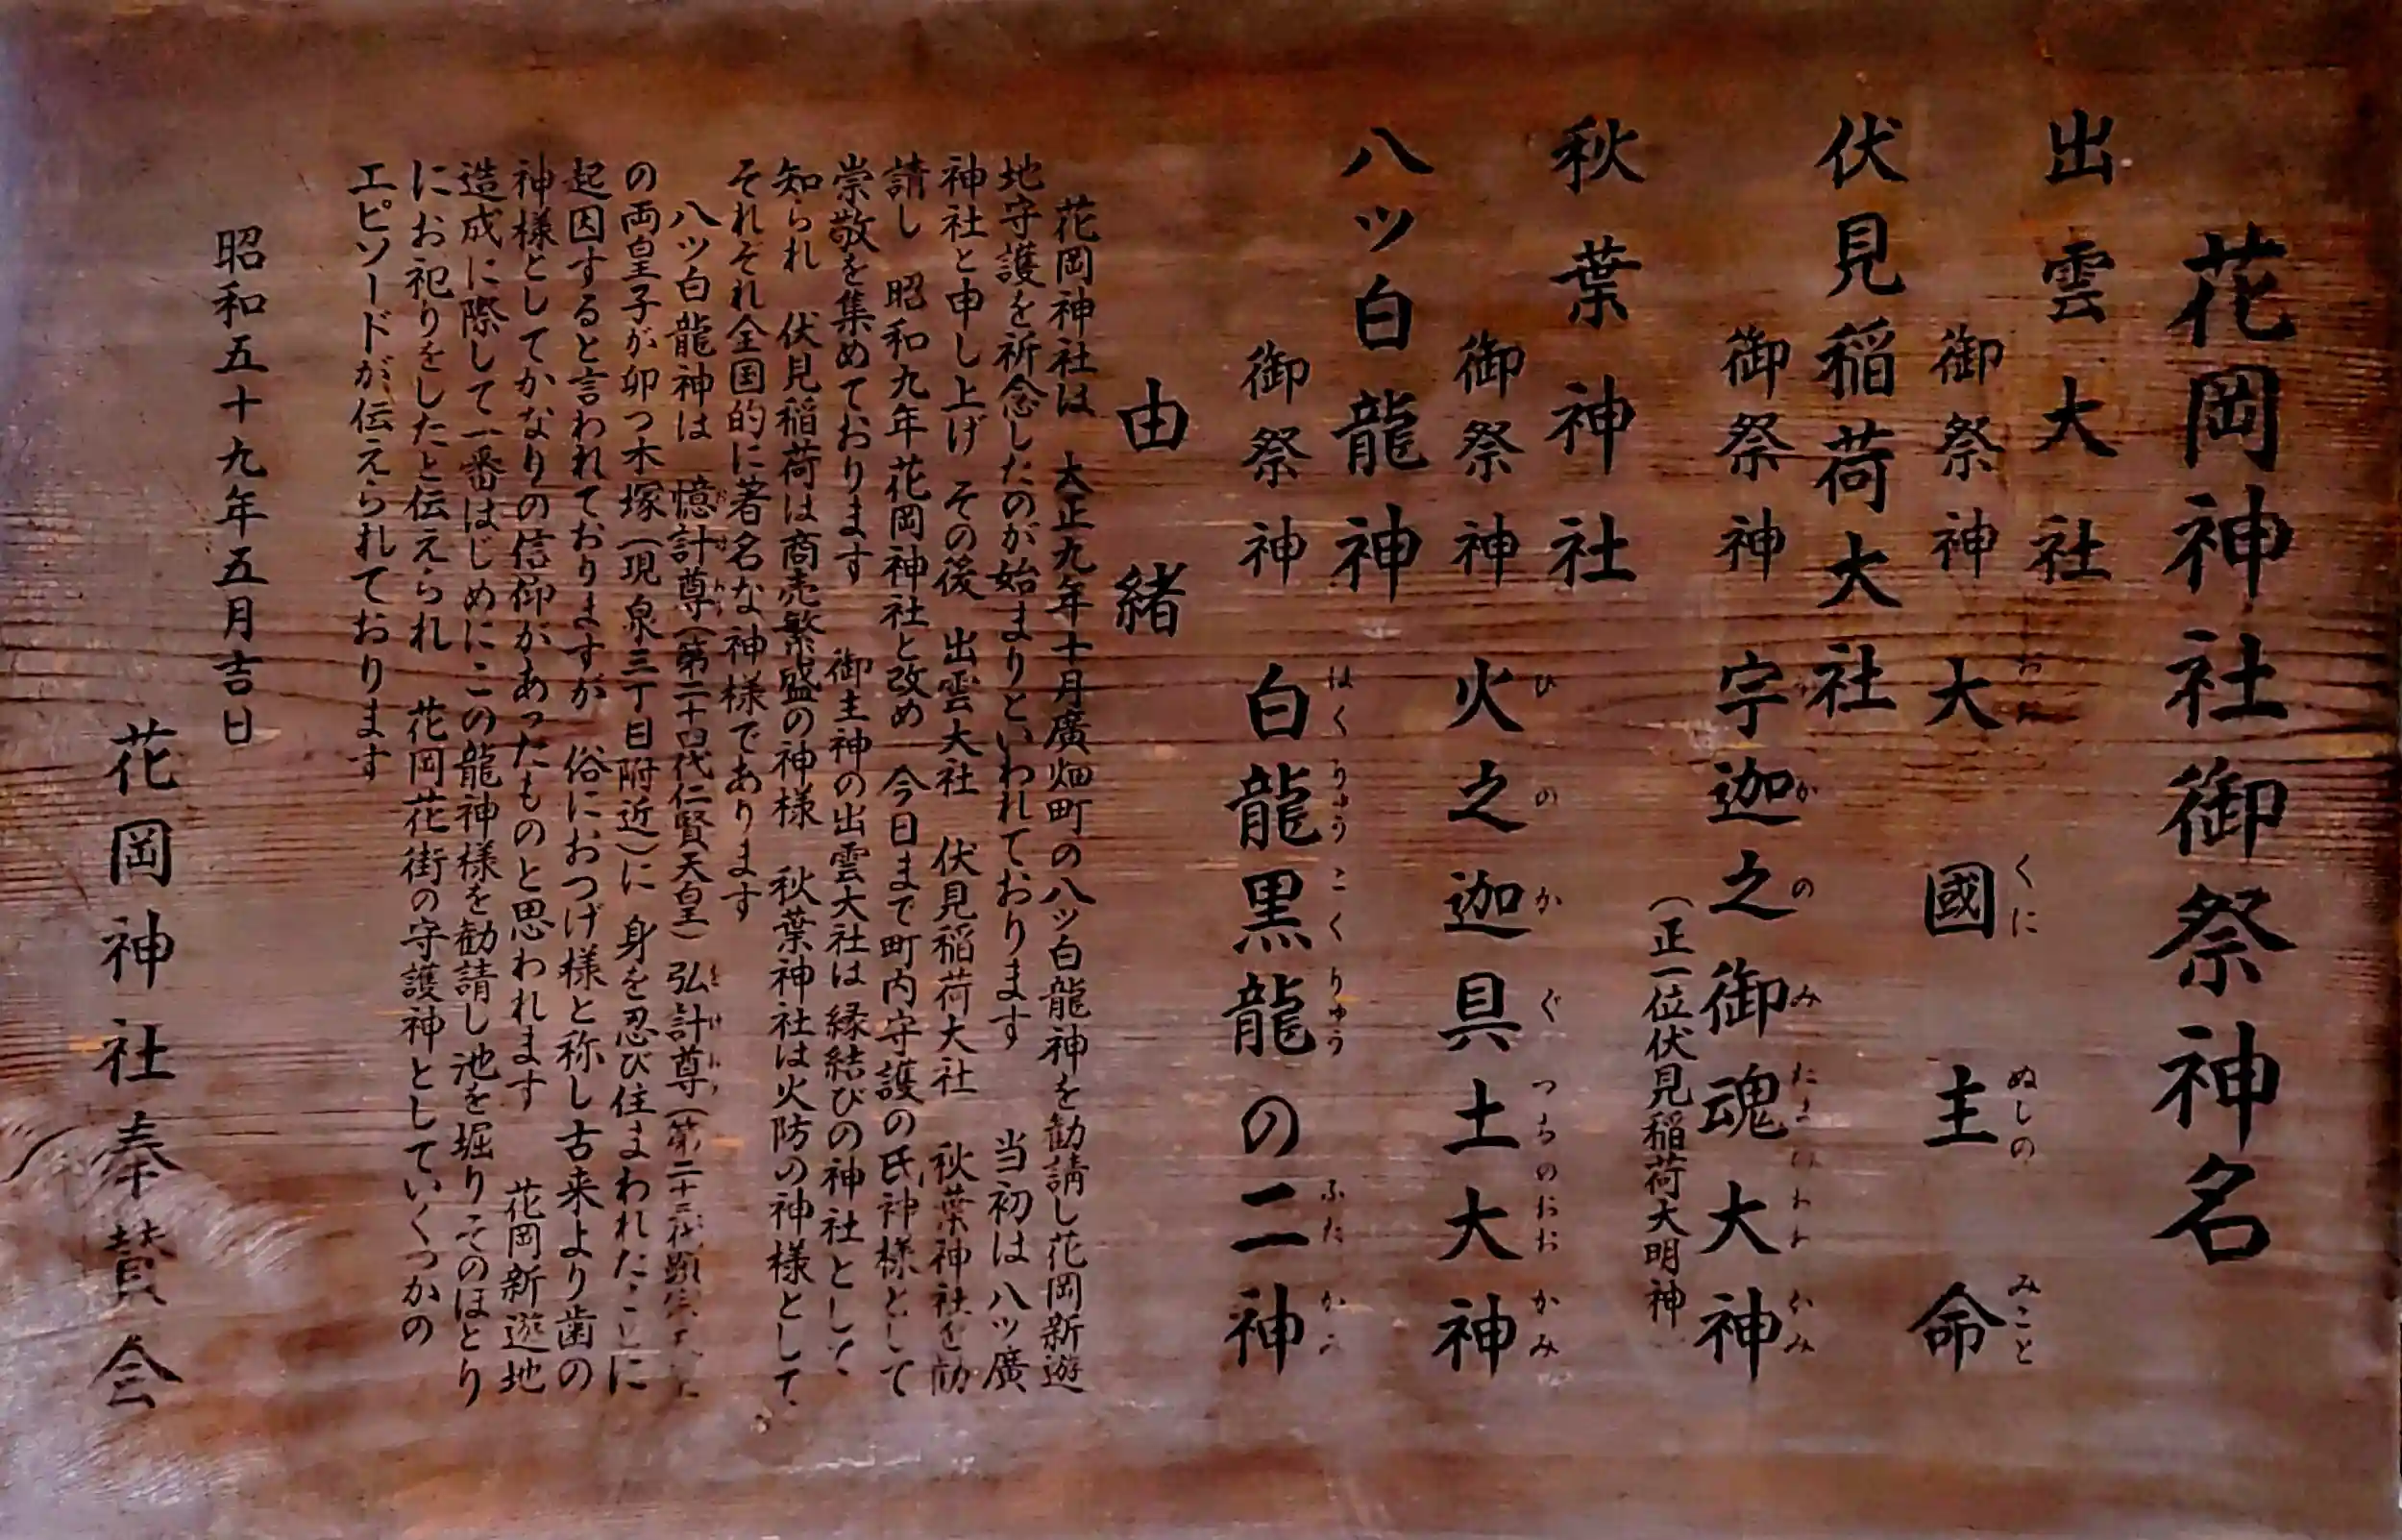 花岡神社御祭神名
出雲大社
御祭神 大國主命
くに ぬしの みこと
伏見稲荷大社
御祭神 宇迦之御魂大神
か の み かみ
(正一位伏見稲荷大明神)
秋葉神社
御祭神 火之迦具土大神
ひ の か ぐ つちのおおかみ
八ッ白龍神
御祭神 白龍黒龍の二神
はくりゅうこくりゅう ふた
由緒
花岡神社は 大正九年十月廣畑町の八ッ白龍神を勧請し花岡新遊
地守護を祈念したのが始まりといわれております 当初は八ッ廣
神社と申し上げ その後 出雲大社 伏見稲荷大社 秋葉神社を勧
請し 昭和九年花岡神社と改め 今日まで町内守護の氏神様として
崇敬を集めております 御主神の出雲大社は縁結びの神社として
知られ 伏見稲荷は商売繁盛の神様 秋葉神社は火防の神様として
それぞれ全国的に著名な神様であります
八ッ白龍神は 憶計尊(第二十四代仁賢天皇)弘計尊(第二十三代顕
の両皇子が卯つ木塚(現泉三丁目附近)に 身を忍び住まわれたことに
起因すると言われておりますが 俗におつげ様と称し古来より歯の
神様としてかなりの信仰があったものと思われます 花岡新遊地
造成に際して一番はじめにこの龍神様を勧請し池を堀りそのほとり
にお祀りをしたと伝えられ 花岡花街の守護神としていくつかの
エピソードが伝えられております
昭和五十九年五月吉日
花岡神社奉賛会